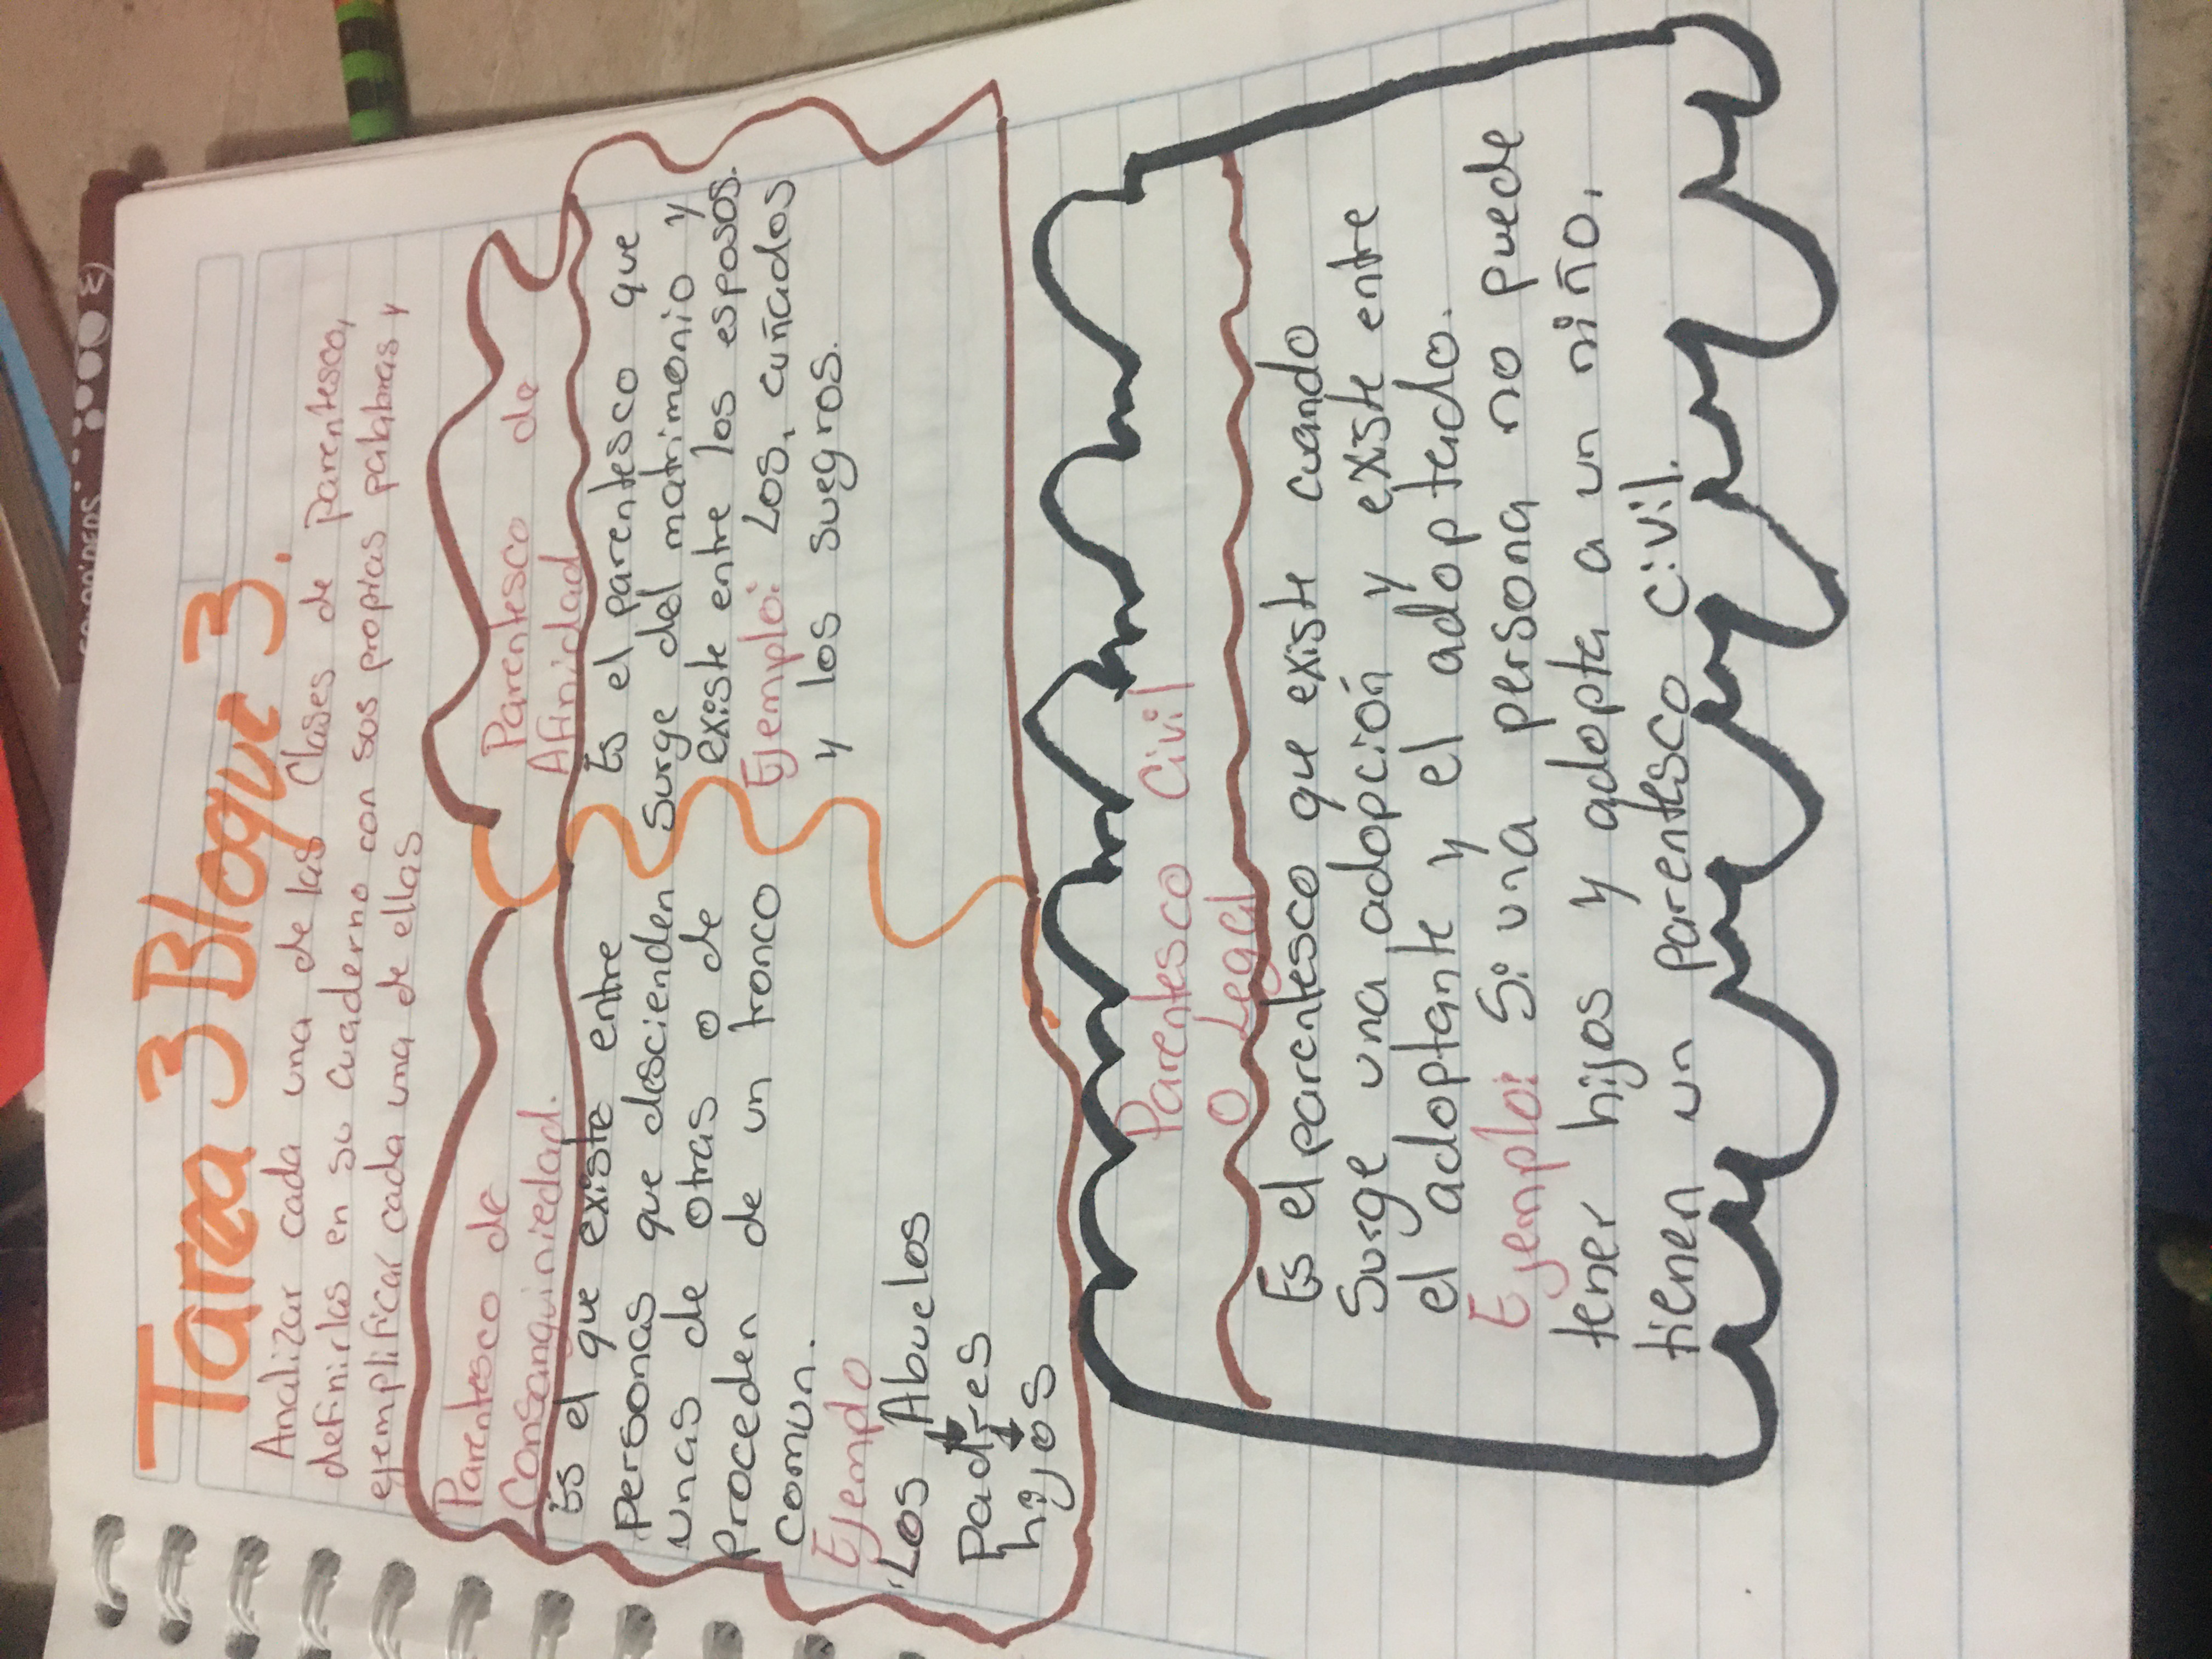 Tarea 3 Bloque 3.
Analizar cada una de las Clases de parentesco,
definirlas en su cuaderno con sus propias palabras y
ejemplificar cada una de ellas
Parentesco de
Consanguiniedad.
Es el que existe entre
personas que descienden
unas de otras o de
proceden de un tronco
comun.
Ejemplo
Los Abuelos
Padres
hijos
Parentesco de
Afinidad
Es el parentesco que
surge del matrimonio y
existe entre los esposos.
Ejemplo: Los, cuñados
y los suegros.
Parentesco Civil
O Legal
Es el parentesco que existe cuando
Surge una adopción y existe entre
el adoptante y el adoptado.
Ejemplo: Si una persona no puede
tener hijos y adopta a un niño,
tienen un parentesco civil.